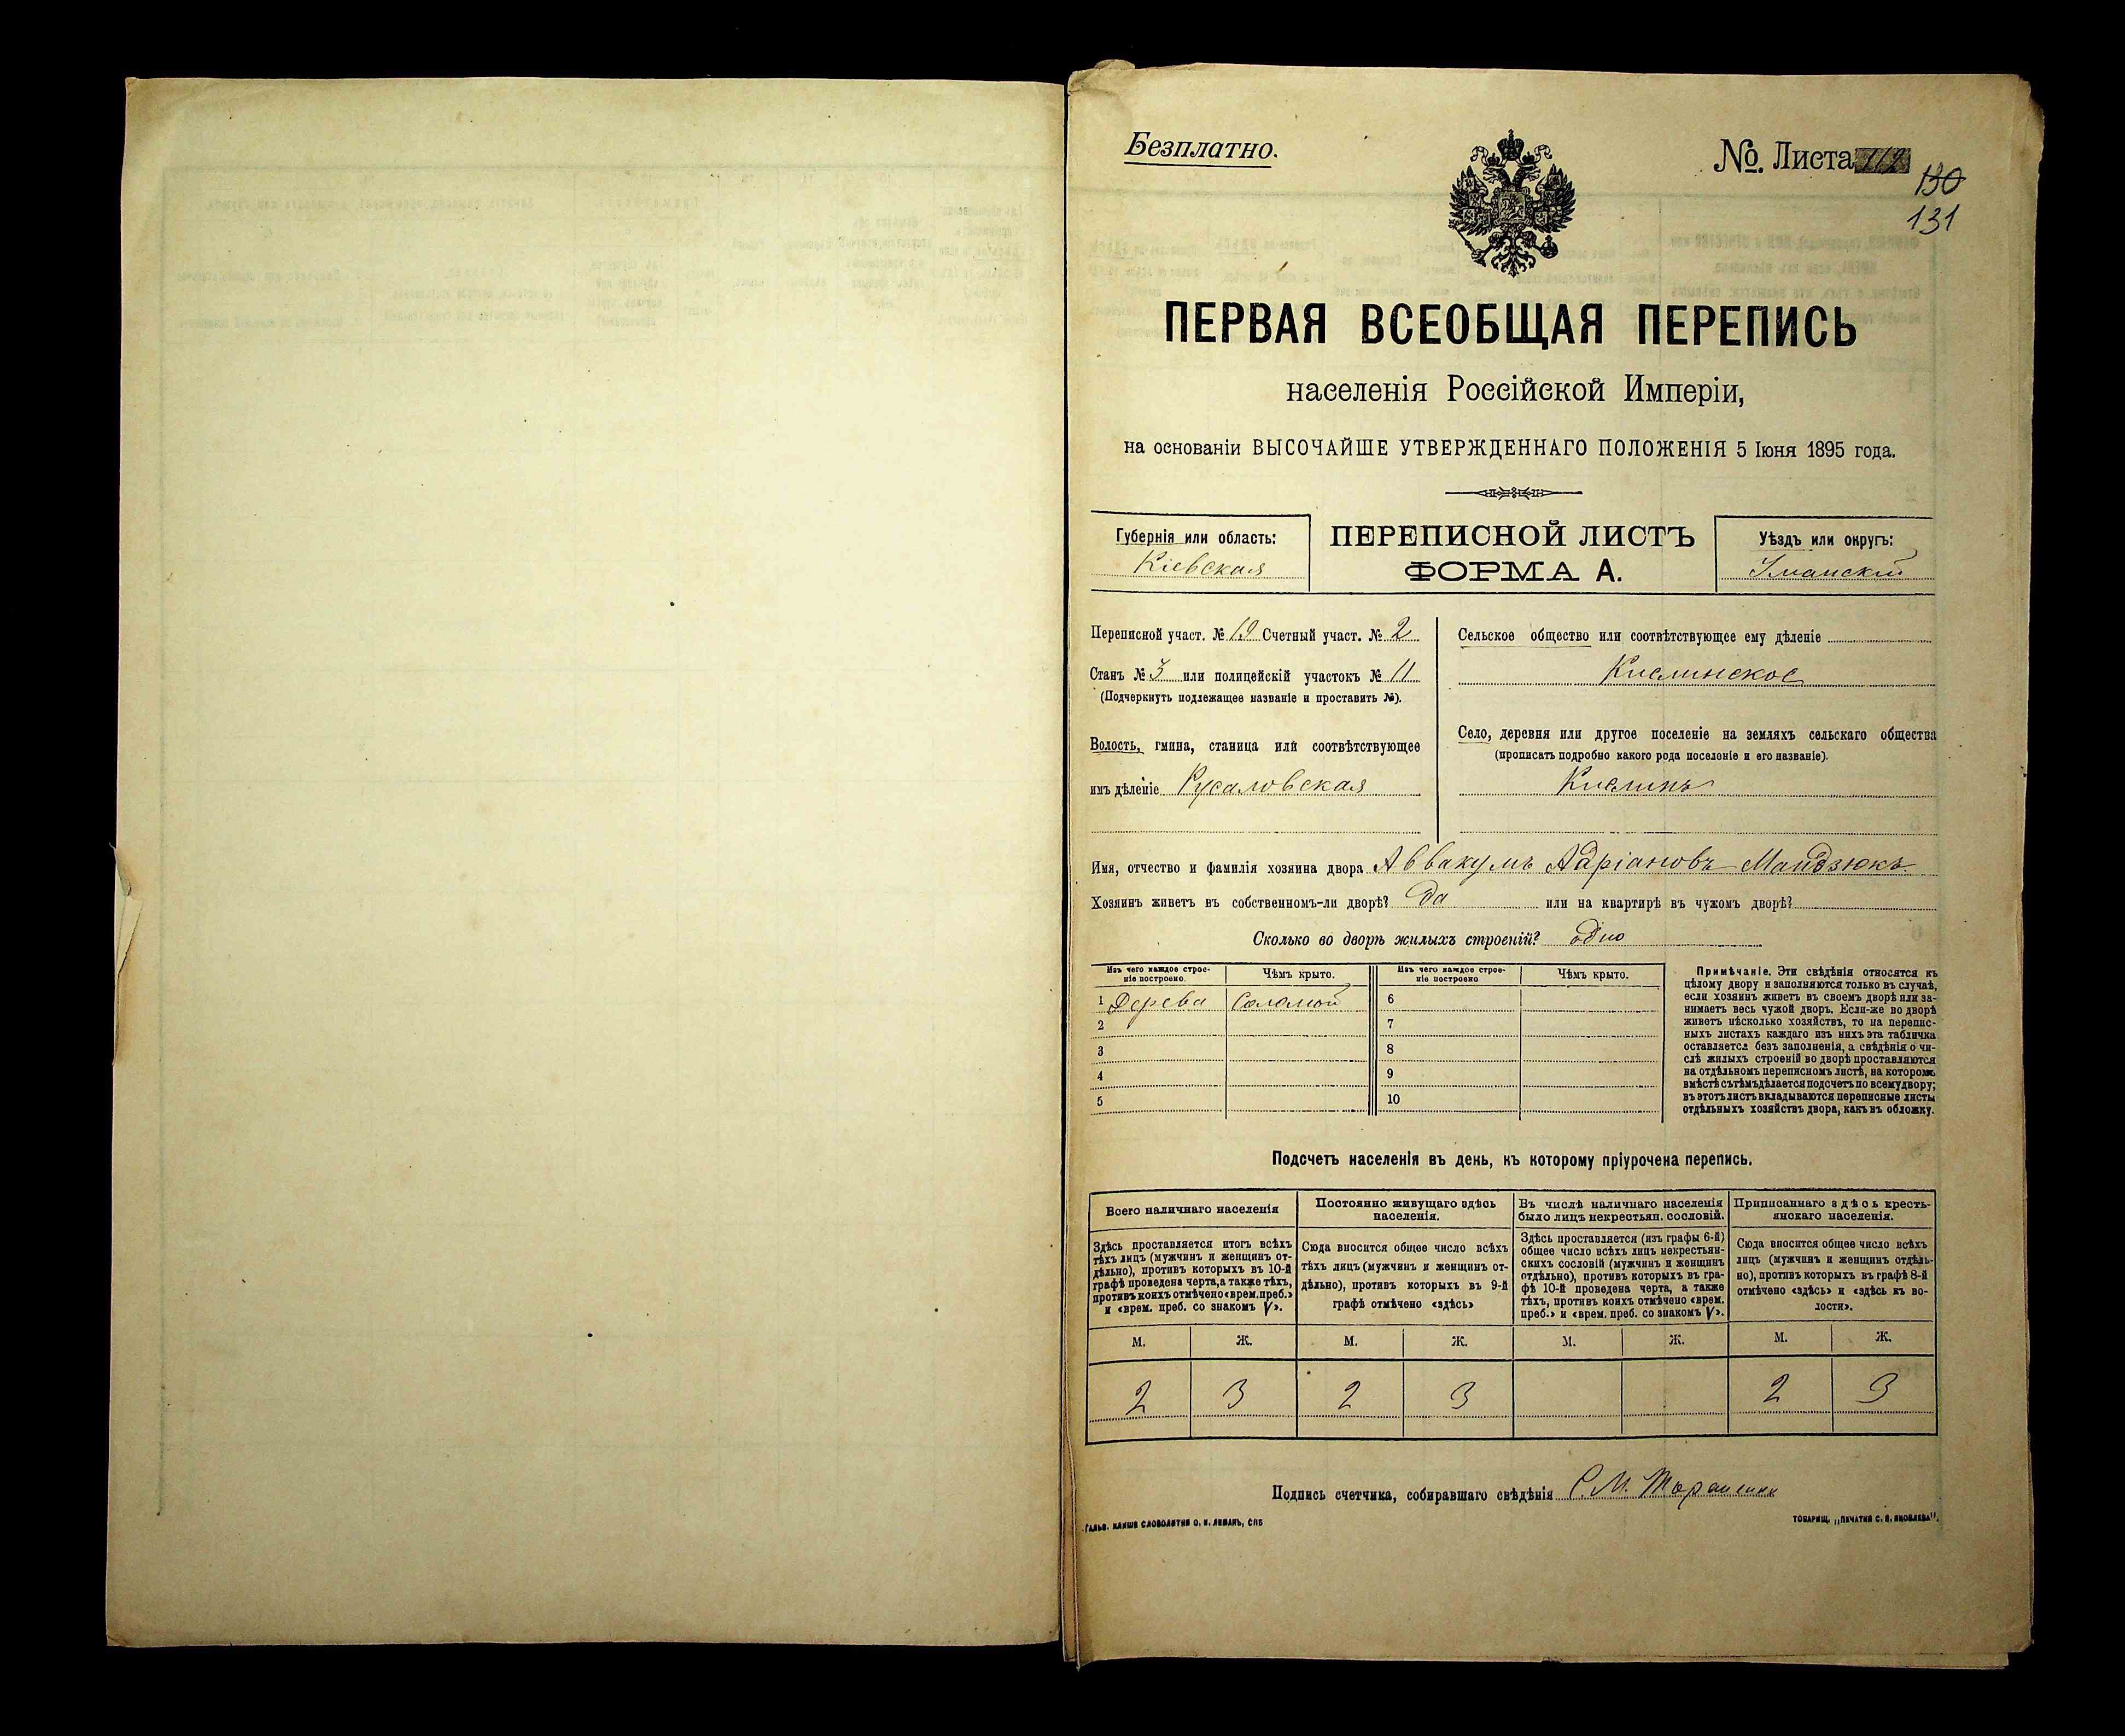 Безплатно.
№ Листа 112
130
131
ПЕРВАЯ ВСЕОБЩАЯ ПЕРЕПИСЬ
населенія Россійской Имперіи,
на основаніи ВЫСОЧАЙШЕ УТВЕРЖДЕННАГО ПОЛОЖЕНІЯ 5 Іюня 1895 года.
Губернія или область:
Кіевская
ПЕРЕПИСНОЙ ЛИСТЪ
ФОРМА А.
Уѣздъ или округъ:
Уманскій
Переписной участ. № 19 Счетный участ. № 2
Станъ № 3 или полицейскій участокъ № 11
(Подчеркнуть подлежащее названіе и проставить №).
Волость, гмина, станица или соотвѣтствующее
имъ дѣленіе Русаловская
Сельское общество или соотвѣтствующее ему дѣленіе
Кислинское
Село, деревня или другое поселеніе на земляхъ сельскаго общества
(прописать подробно какого рода поселеніе и его названіе).
Кислинъ
Имя, отчество и фамилія хозяина двора Аввакумъ Адріановъ Мандзюкъ
Хозяинъ живетъ въ собственномъ-ли дворѣ? Да или на квартирѣ въ чужомъ дворѣ?
Сколько во дворѣ жилыхъ строеній? одно
Изъ чего каждое строе-
ніе построено.
Чѣмъ крыто.
Изъ чего каждое строе-
ніе построено
Чѣмъ крыто.
1 Дерева Соломой 6
2 7
3 8
4 9
5 10
Примѣчаніе. Эти свѣдѣнія относятся къ
цѣлому двору и заполняются только въ случаѣ,
если хозяинъ живетъ въ своемъ дворѣ или за-
нимаетъ весь чужой дворъ. Если-же во дворѣ
живетъ нѣсколько хозяйствъ, то на перепис-
ныхъ листахъ каждаго изъ нихъ эта табличка
оставляется безъ заполненія, а свѣдѣнія о чи-
слѣ жилыхъ строеній во дворѣ проставляются
на отдѣльномъ переписномъ листѣ, на которомъ
вмѣстѣ съ тѣмъ дѣлается подсчетъ по всему двору;
въ этотъ листъ вкладываются переписные листы
отдѣльныхъ хозяйствъ двора, какъ въ обложку.
Подсчетъ населенія въ день, къ которому пріурочена перепись.
Всего наличнаго населенія
Здѣсь проставляется итогъ всѣхъ
тѣхъ лицъ (мужчинъ и женщинъ от-
дѣльно), противъ которыхъ въ 10-й
графѣ проведена черта, а также тѣхъ,
противъ коихъ отмѣчено «врем. преб.»
и «врем. преб. со знакомъ V».
Постоянно живущаго здѣсь
населенія.
Сюда вносится общее число всѣхъ
тѣхъ лицъ (мужчинъ и женщинъ от-
дѣльно), противъ которыхъ въ 9-й
графѣ отмѣчено «здѣсь»
Въ числѣ наличнаго населенія
было лицъ некрестьян. сословій.
Здѣсь проставляется (изъ графы 6-й)
общее число всѣхъ лицъ некрестьян-
скихъ сословій (мужчинъ и женщинъ
отдѣльно), противъ которыхъ въ гра-
фѣ 10-й проведена черта, а также
тѣхъ, противъ коихъ отмѣчено «врем.
преб.» и «врем. преб. со знакомъ V».
Приписаннаго здѣсь кресть-
янскаго населенія.
Сюда вносится общее число всѣхъ
лицъ (мужчинъ и женщинъ отдѣль-
но), противъ которыхъ въ графѣ 8-й
отмѣчено «здѣсь» и «здѣсь къ во-
лости».
М. Ж. М. Ж. М. Ж. М. Ж.
2 3 2 3 2 3
Подпись счетчика, собиравшаго свѣдѣнія С. М.
ГАЛЬВ. КЛИШЕ СЛОВОЛИТНИ О. И. ЛЕМАНЪ, СПБ
ТОВАРИЩ. „ПЕЧАТНЯ С. П. ЯКОВЛЕВА".